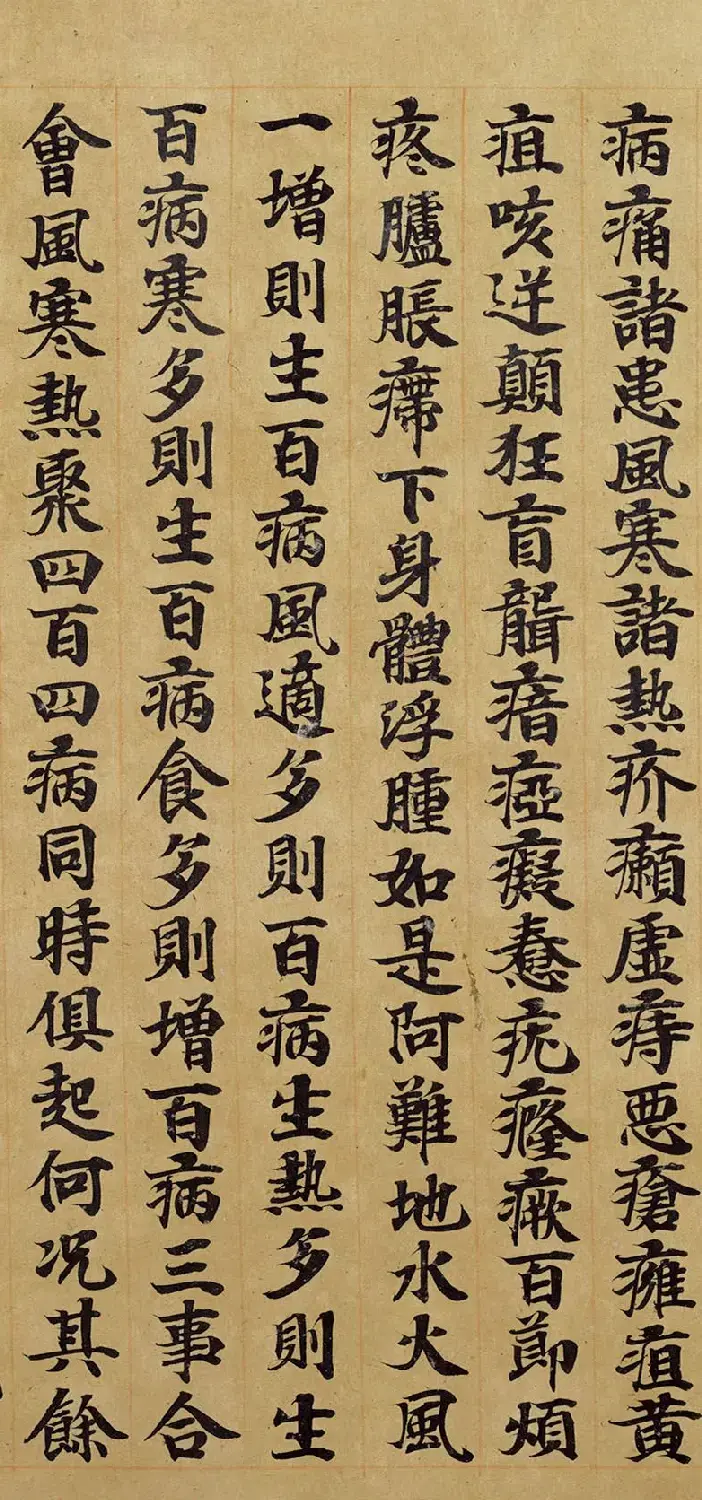 病痛諸患風寒諸熱疥癩虛痔惡瘡癰疽黃
疽咳逆顛狂盲聾瘖瘂癡憃疣癃瘷百節煩
疼臚脹㿃下身體浮腫如是阿難地水火風
一增則生百病風適多則百病生熱多則生
百病寒多則生百病食多則增百病三事合
會風寒熱聚四百四病同時俱起何況其餘